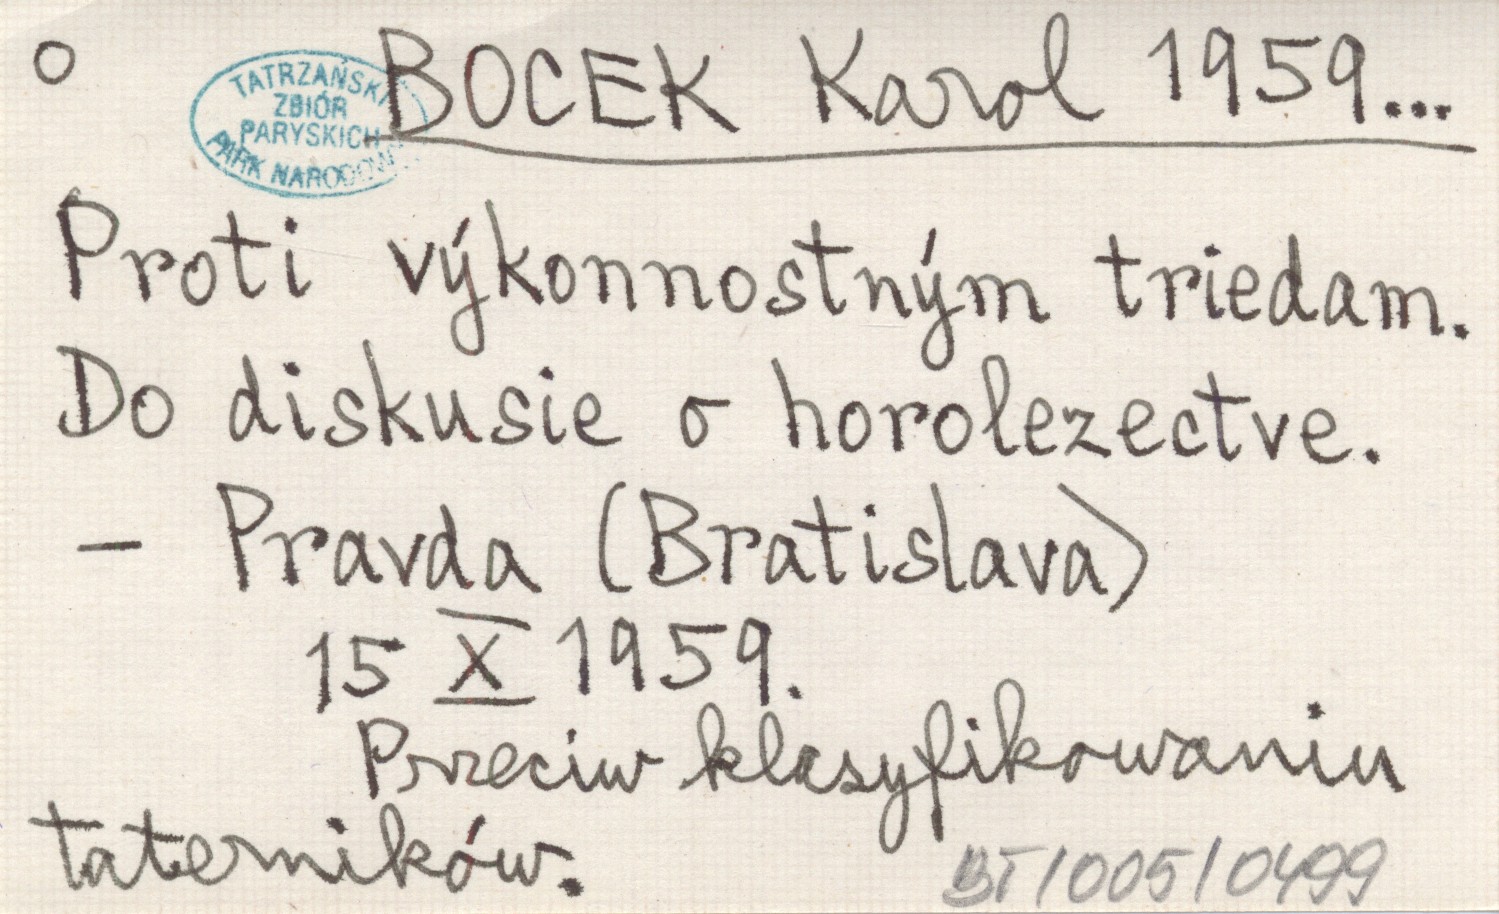 o BOCEK Karol 1959...
TATRZAŃSKI
ZBIÓR
PARYSKICH
PARK NARODOWY
Proti výkonnostným triedam.
Do diskusie o horolezectve.
- Pravda (Bratislava)
15 X 1959.
Przeciw klasyfikowaniu
taterników.
BT/005/0499